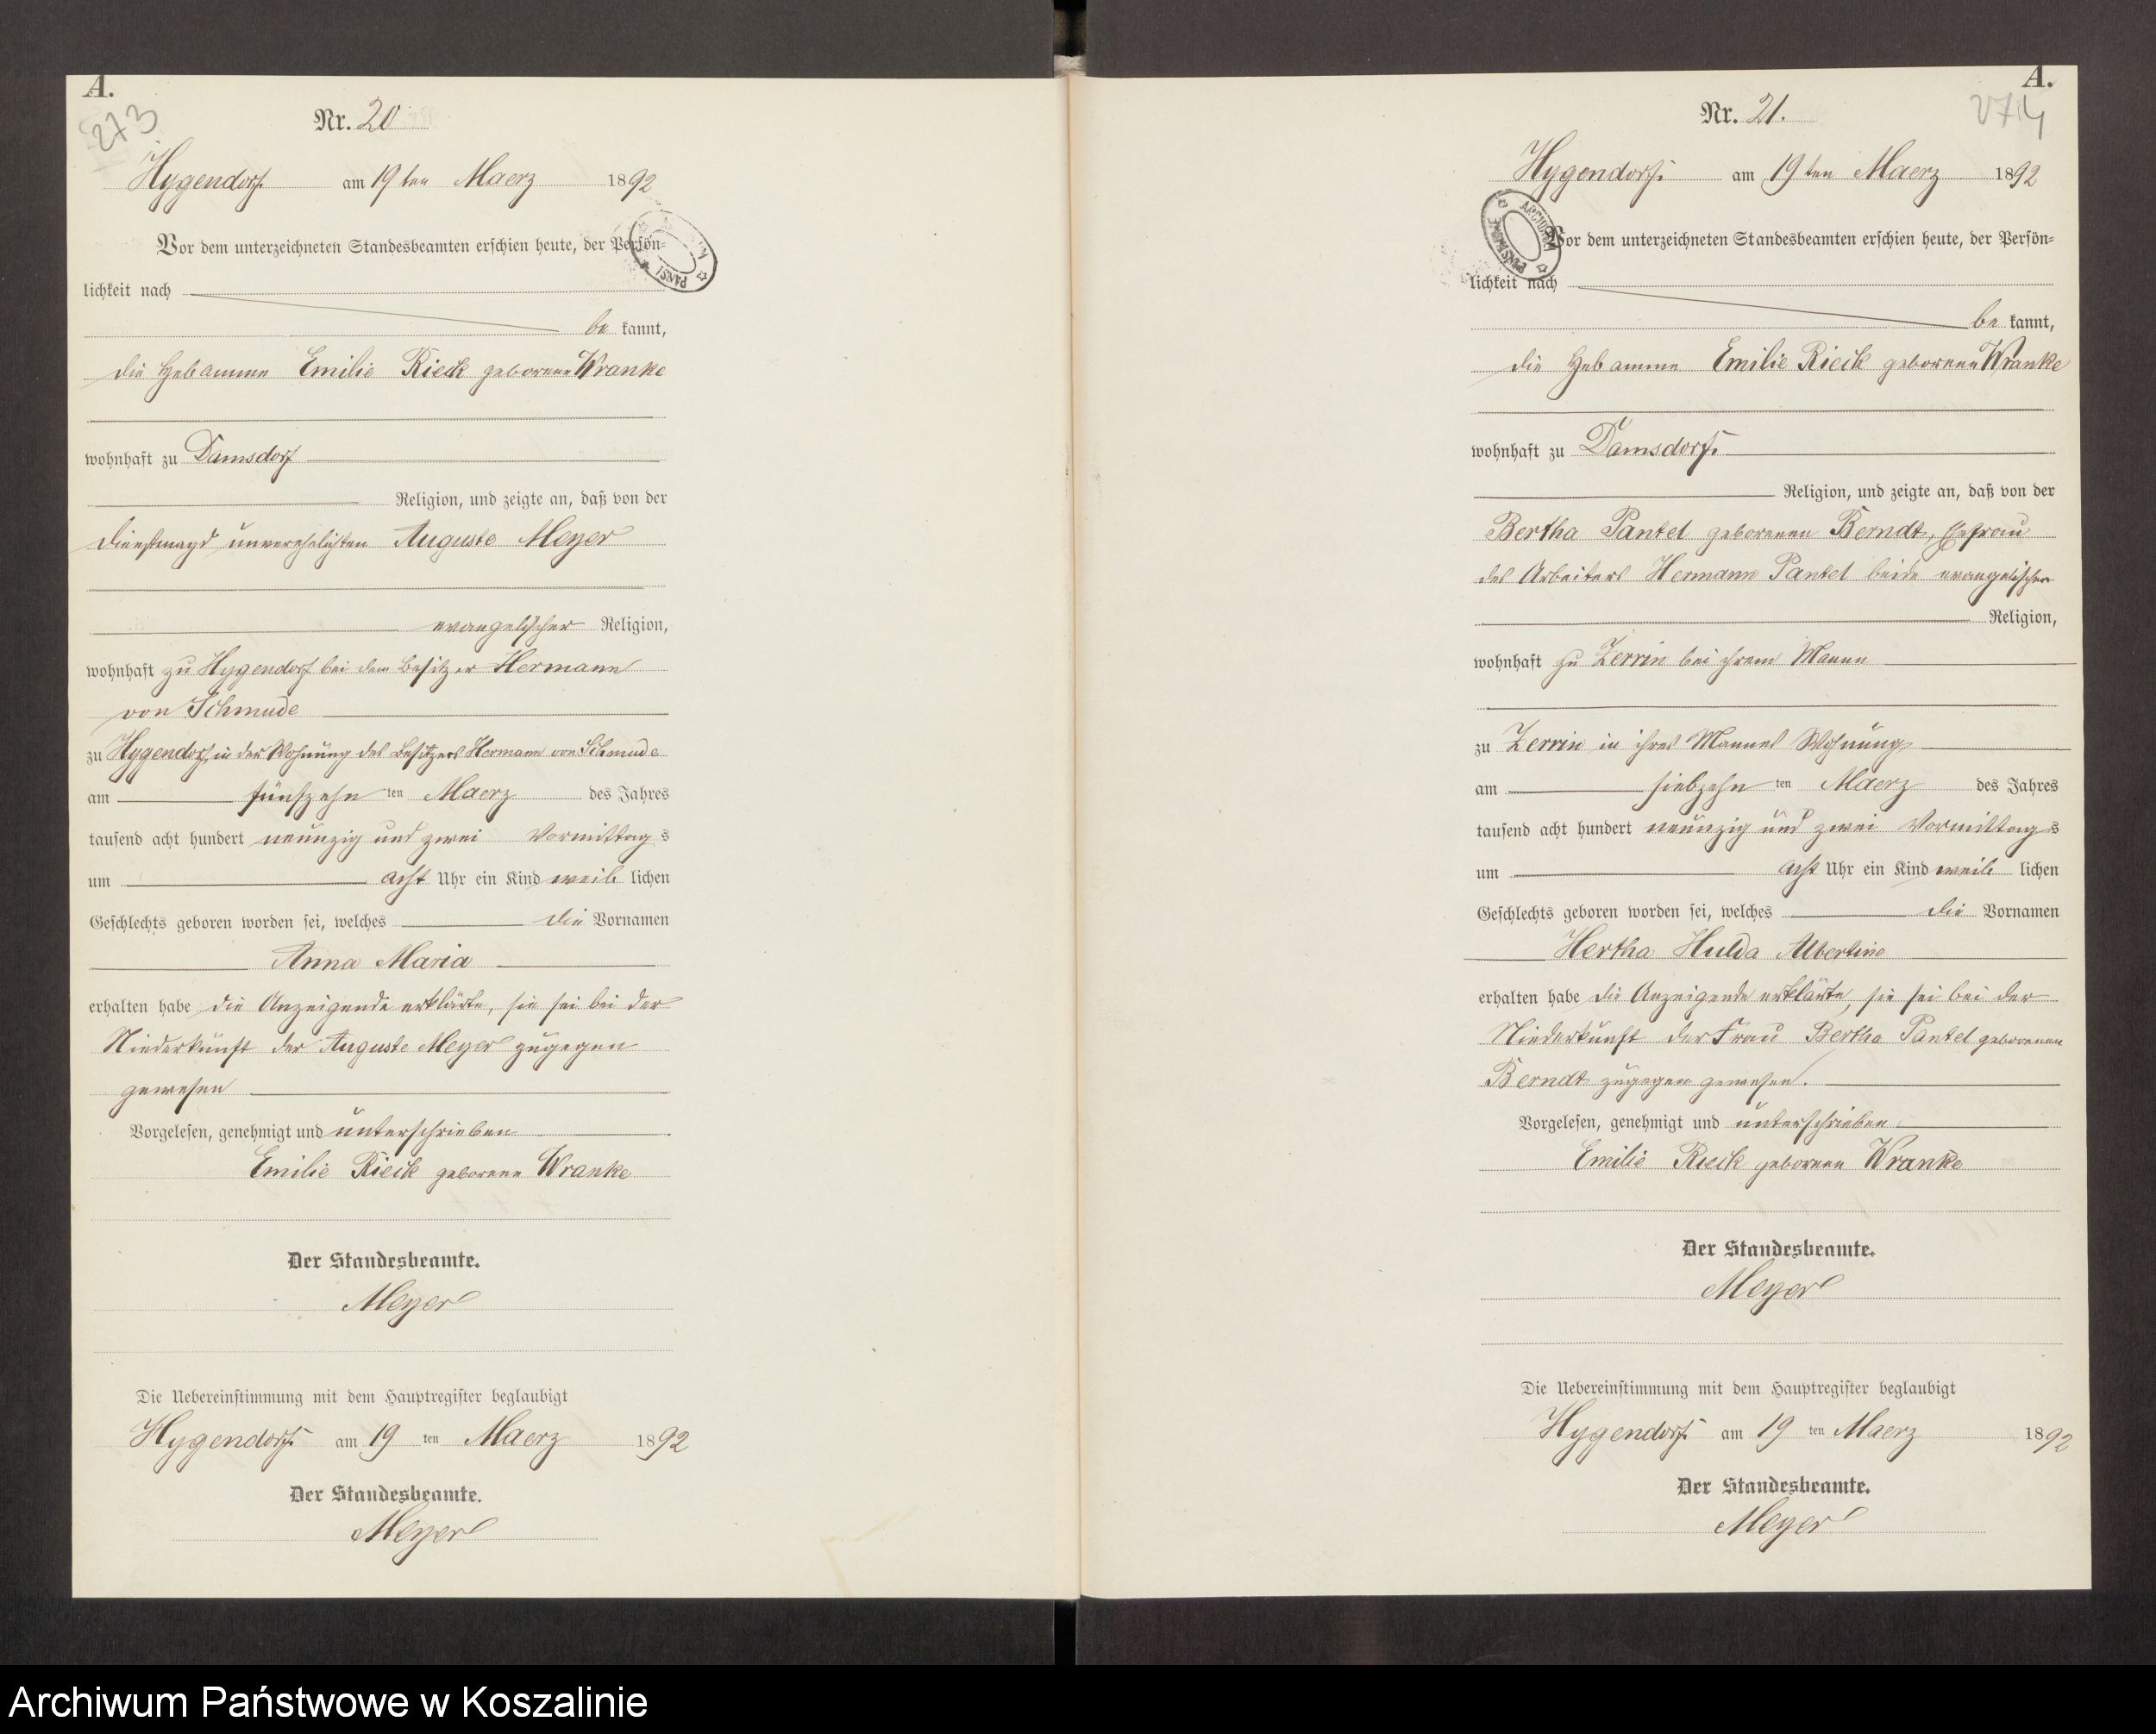 A.
273
Nr. 20
Hygendorf am 19ten Maerz 1892
Vor dem unterzeichneten Standesbeamten erschien heute, der Persön=
lichkeit nach
be kannt,
die Hebamme Emilie Rieck geborene Wranke
wohnhaft zu Damsdorf
Religion, und zeigte an, daß von der
Dienstmagd unverehelichten Auguste Meyer
evangelischer Religion,
wohnhaft zu Hygendorf bei dem Besitzer Hermann
von Schmude
zu Hygendorf, in der Wohnung des Besitzers Hermann von Schmude
am fünfzehn ten Maerz des Jahres
tausend acht hundert neunzig und zwei Vormittag s
um acht Uhr ein Kind weib lichen
Geschlechts geboren worden sei, welches die Vornamen
Anna Maria
erhalten habe die Anzeigende erklärte, sie sei bei der
Niederkunft der Auguste Meyer zugegen
gewesen
Vorgelesen, genehmigt und unterschrieben
Emilie Rieck geborene Wranke
Der Standesbeamte.
Meyer
Die Uebereinstimmung mit dem Hauptregister beglaubigt
Hygendorf am 19 ten Maerz 1892
Der Standesbeamte.
Meyer
A.
274
Nr. 21.
Hygendorf. am 19ten Maerz 1892
Vor dem unterzeichneten Standesbeamten erschien heute, der Persön=
lichkeit nach
be kannt,
die Hebamme Emilie Rieck geborene Wranke
wohnhaft zu Damsdorf.
Religion, und zeigte an, daß von der
Bertha Pantel geborenen Berndt, Ehefrau
des Arbeiters Hermann Pantel beide evangelischer
Religion,
wohnhaft zu Zerrin bei ihrem Manne
zu Zerrin in ihres Mannes Wohnung
am siebzehn ten Maerz des Jahres
tausend acht hundert neunzig und zwei Vormittag s
um acht Uhr ein Kind weib lichen
Geschlechts geboren worden sei, welches die Vornamen
Hertha Hulda Albertine
erhalten habe die Anzeigende erklärte, sie sei bei der
Niederkunft der Frau Bertha Pantel geborenen
Berndt zugegen gewesen.
Vorgelesen, genehmigt und unterschrieben
Emilie Rieck geborene Wranke
Der Standesbeamte.
Meyer
Die Uebereinstimmung mit dem Hauptregister beglaubigt
Hygendorf am 19 ten Maerz 1892
Der Standesbeamte.
Meyer
Archiwum Państwowe w Koszalinie